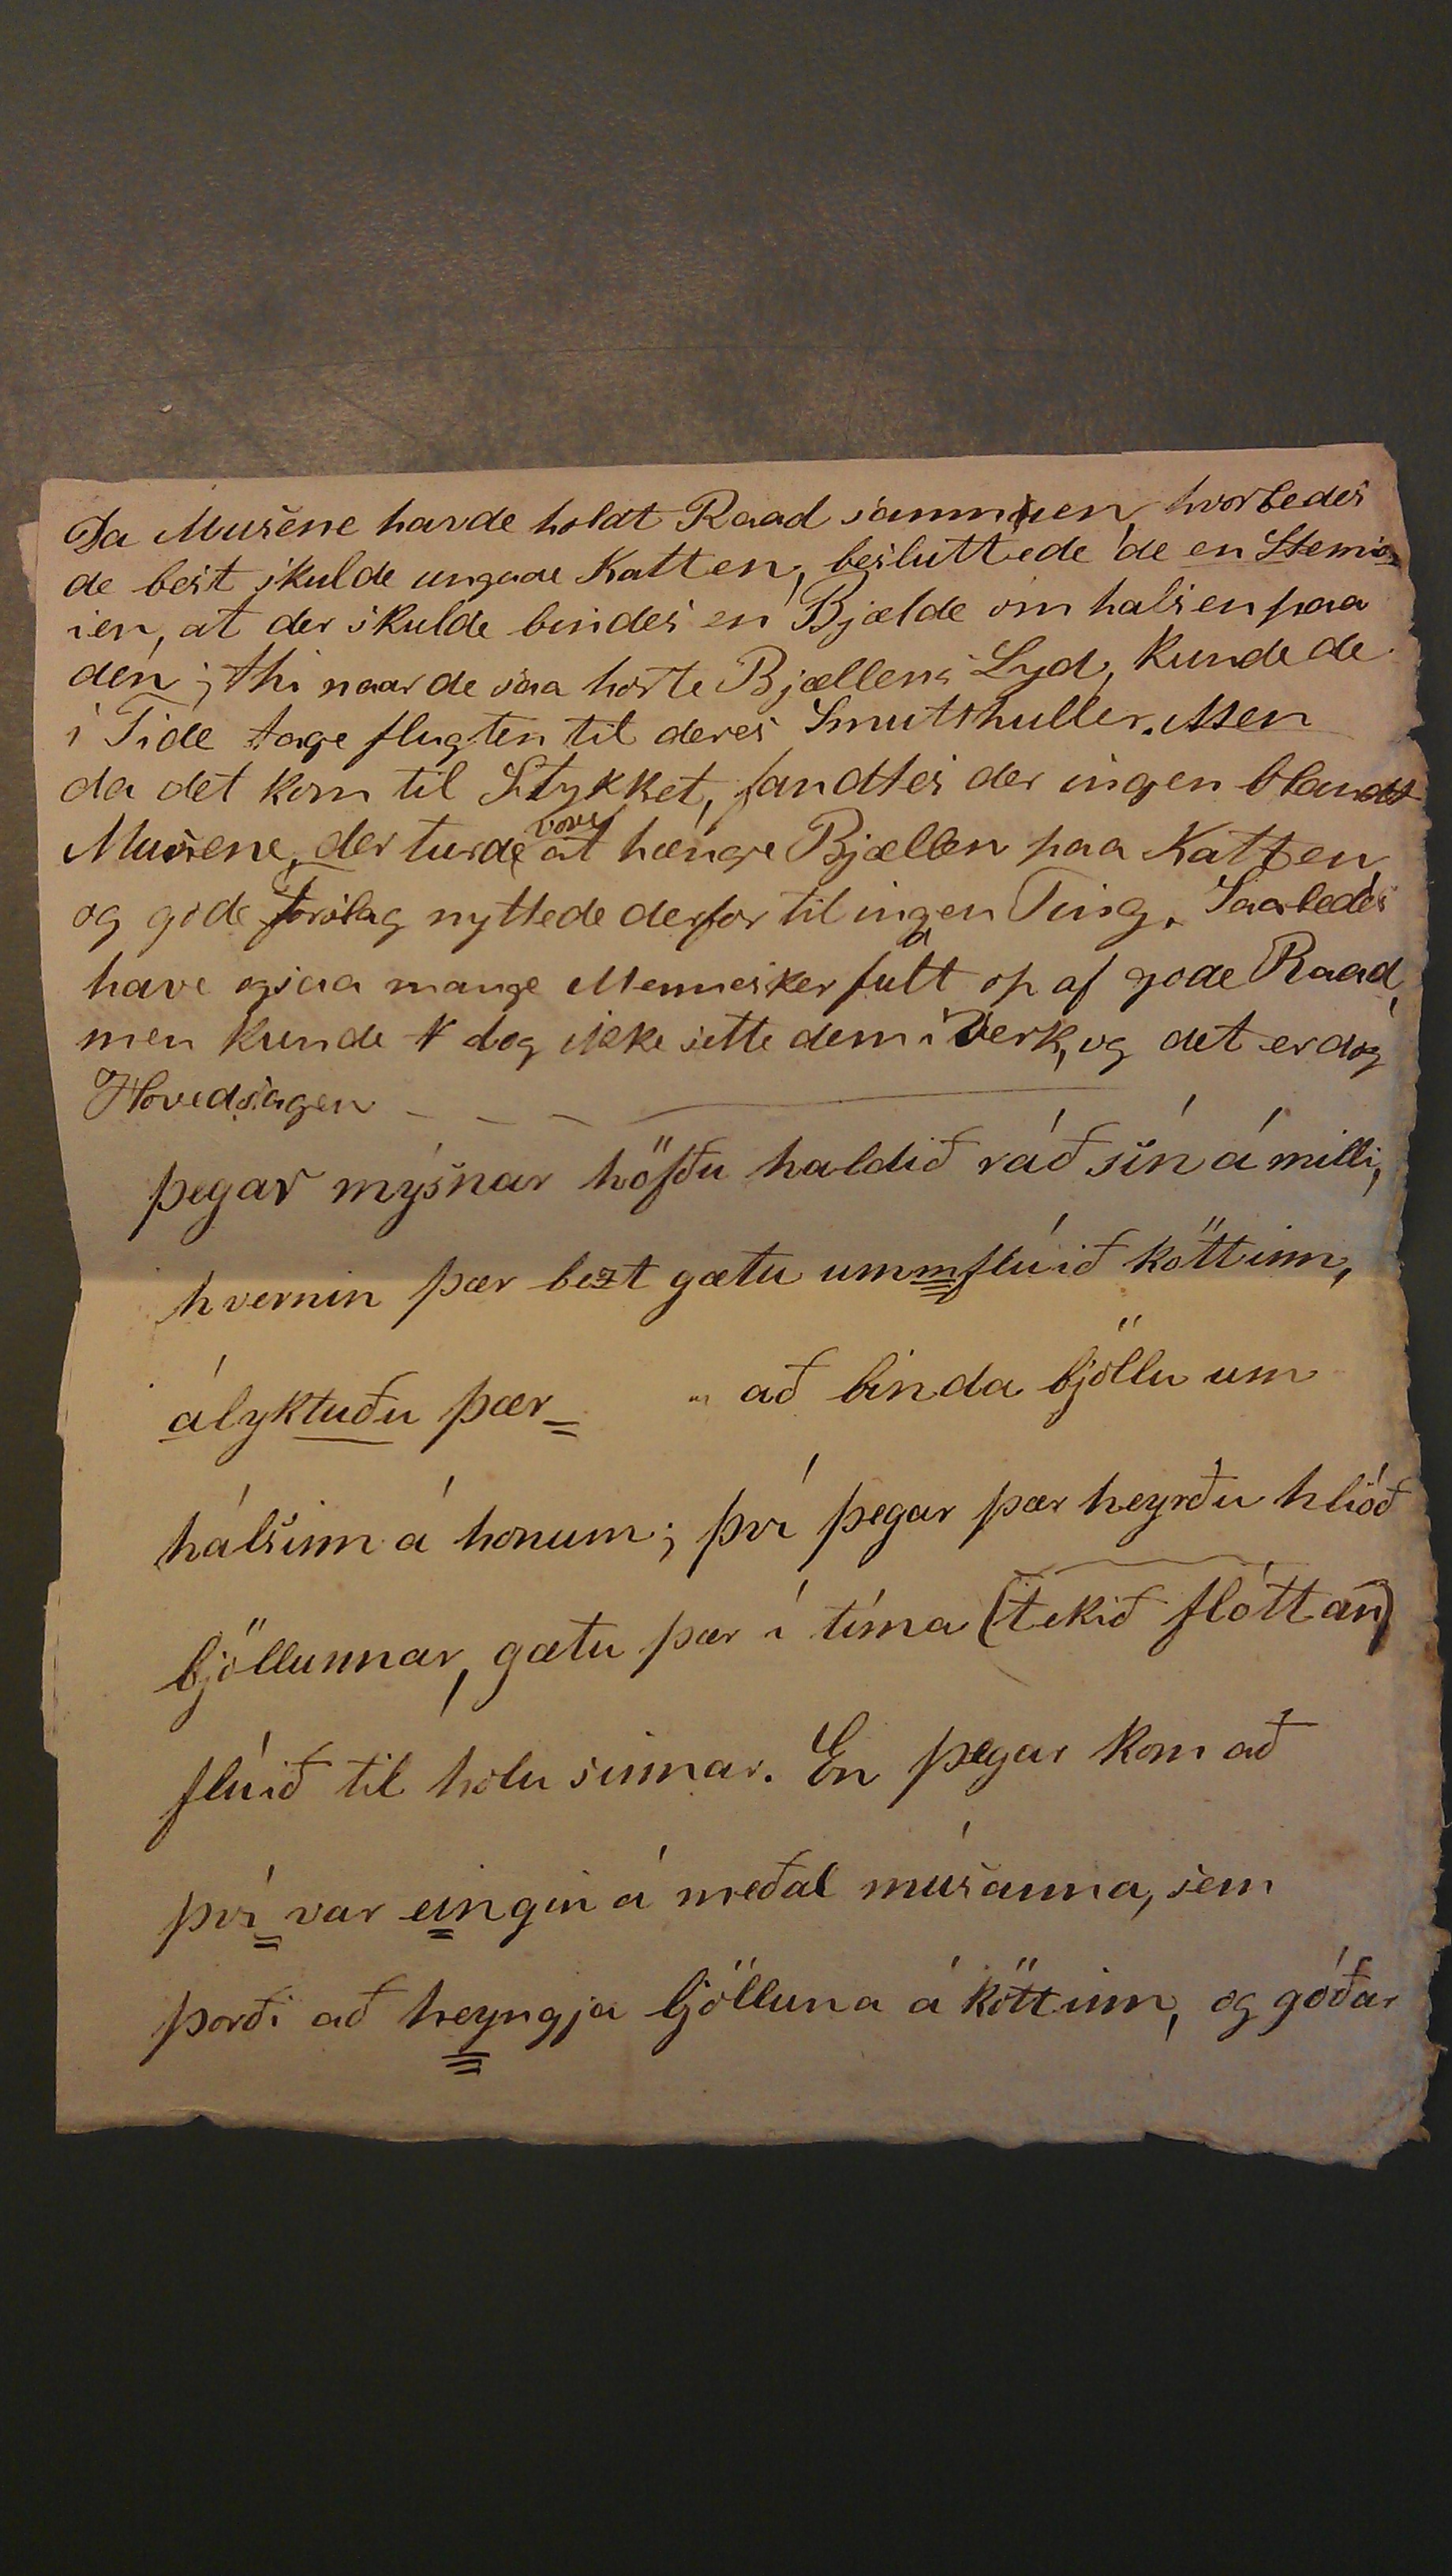 Da Musene havde holdt Raad sammen, hvorledes
de best skulde ungaae Katten, besluttede de en Stemi-
ien, at der skulde bindes en Bjælde om halsen paa
den; thi naar de saa hørte Bjællens Lyd, kunde de
i Tide tage flugten til deres Smutthuller. Men
da det kom til Stykket, fandtes der ingen blandt
Musene, der turde vove at hænge Bjællen paa Katten,
og gode forslag nyttede derfor til ingen Ting. Saaledes
have ogsaa mange Mennesker fult op af gode Raad,
men kunde dog ikke sette dem i Verk, og det er dog
Hovedsagen
þegar mýsnar höfðu haldið ráð sín á milli,
hvernin þær bezt gætu ummflúið köttinn,
ályktuðu þær = „ að binda bjöllu um
hálsinn á honum; því þegar þær heyrðu hlióð
bjöllunnar, gætu þær í tíma (tekið flóttan)
flúið til holu sinnar. En þegar kom að
því var eingin á meðal músanna, sem
þorði að heyngja bjölluna á köttinn, og góðar